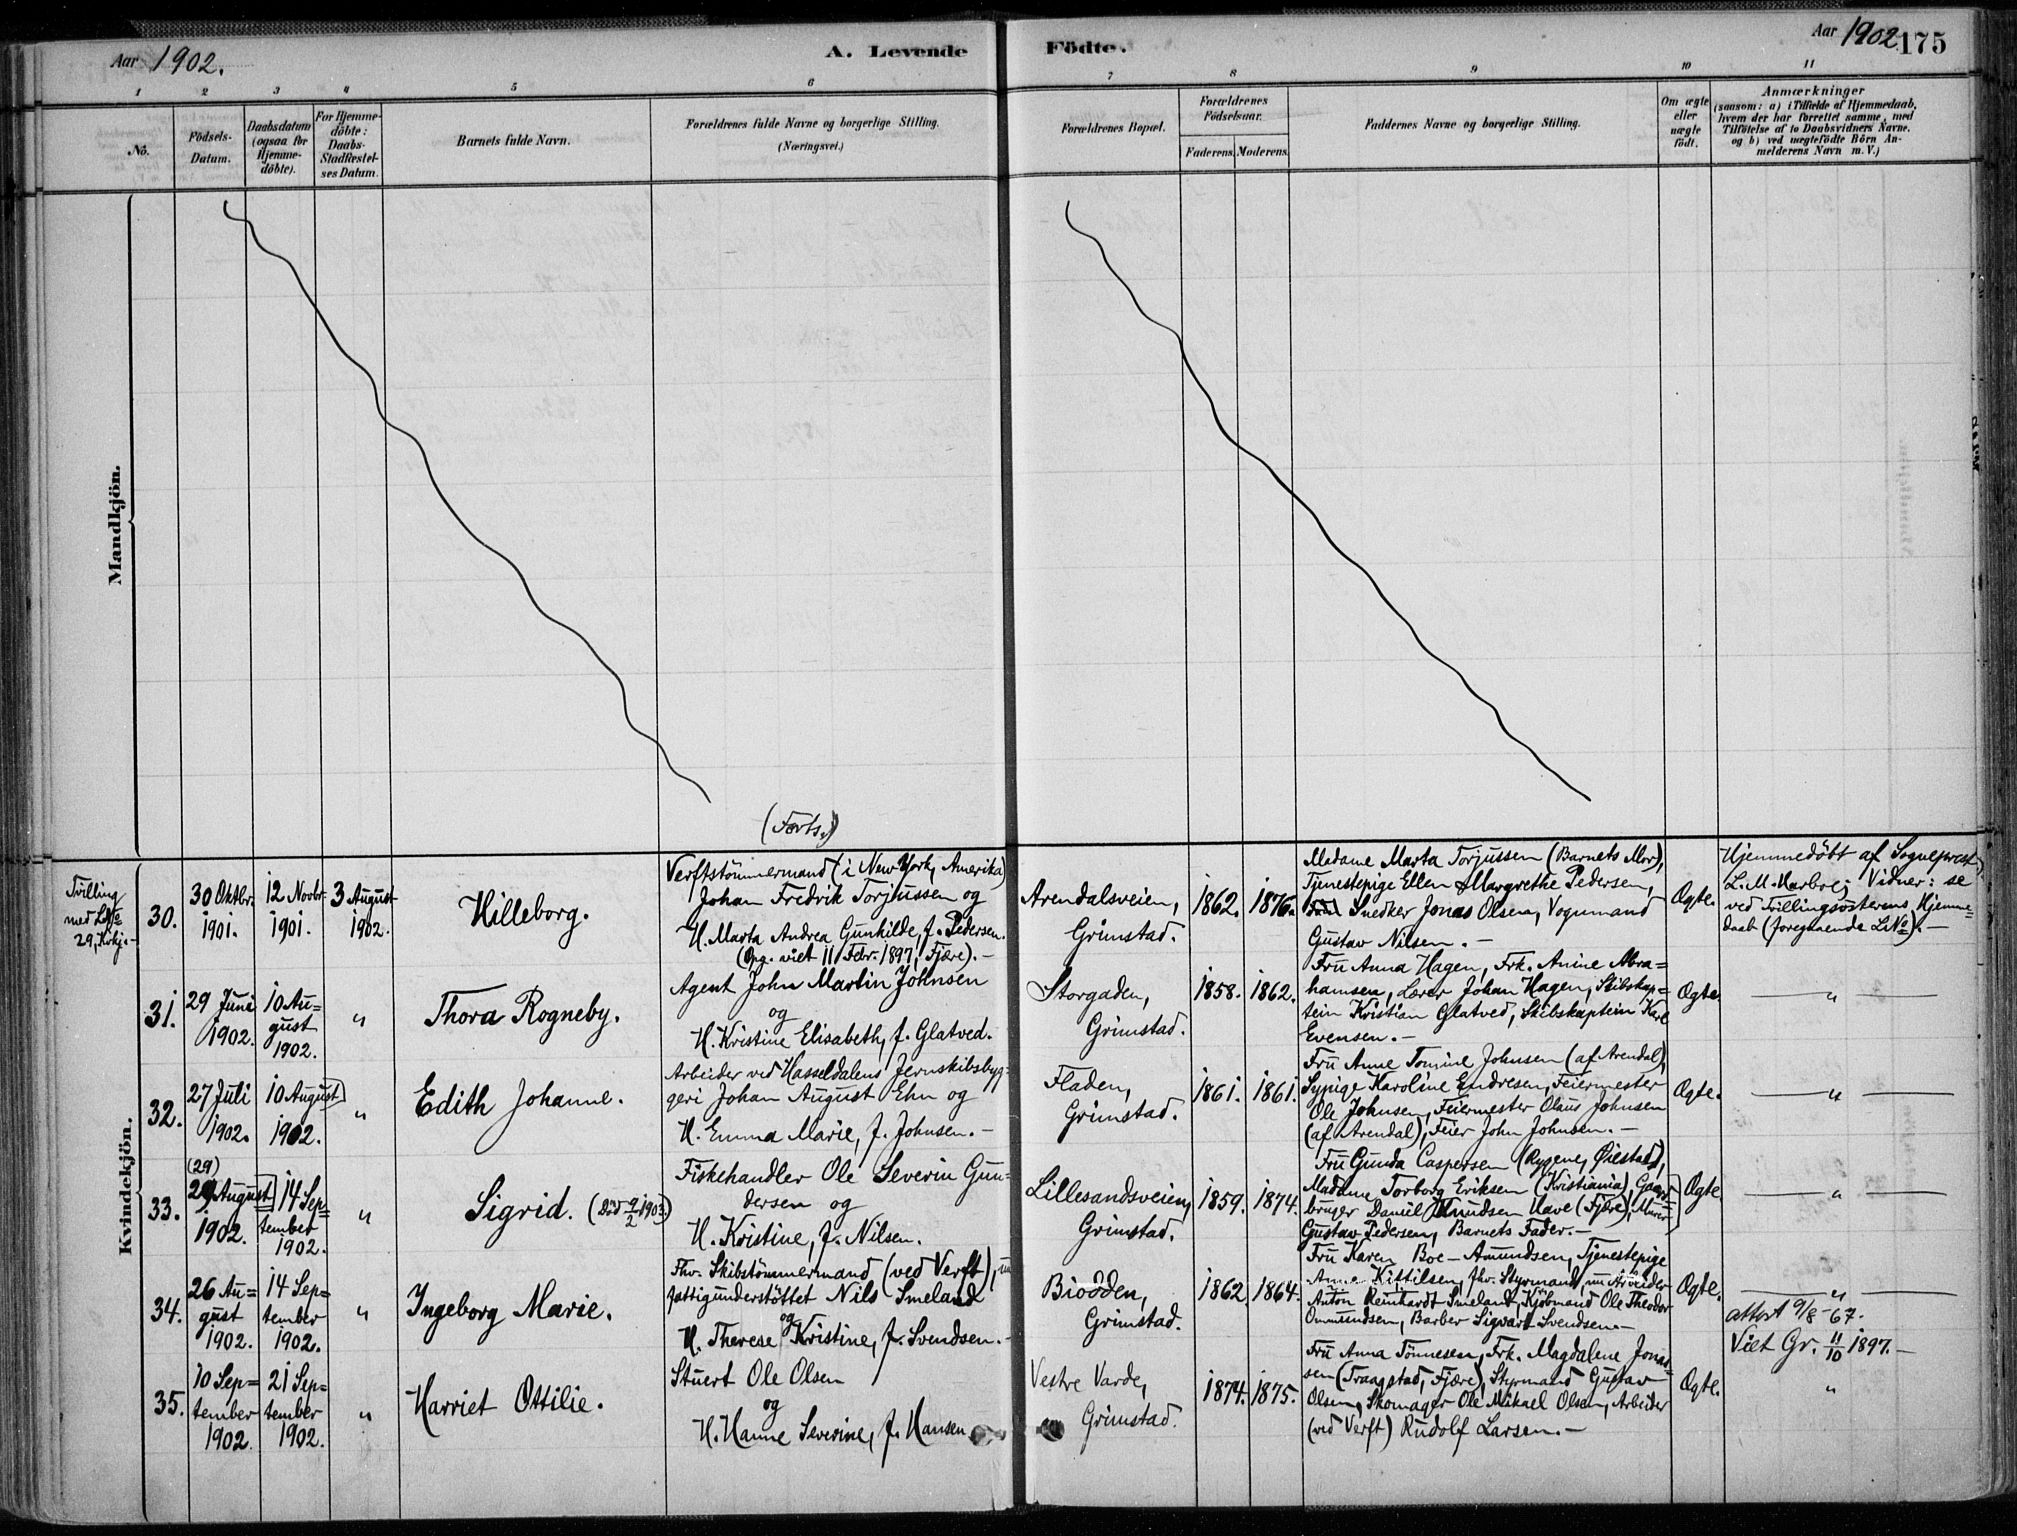 Aar 1902.
A. Levende
Födte.
Aar 1902
175
1 2 3 4 5 6 7 8 9 10 11
No.
Födsels-
Datum.
Daabsdatum
(ogsaa for
Hjemme-
döbte).
For Hjemme-
döbte:
Daabs-
Stadfæstel-
ses Datum.
Barnets fulde Navn.
Forældrenes fulde Navne og borgerlige Stilling.
(Næringsvei.)
Forældrenes Bopæl.
Forældrenes
Födselsaar.
Faderens. Moderens.
Faddernes Navne og borgerlige Stilling.
Om ægte
eller
uægte
født.
Anmærkninger
(saasom: a) i Tilfælde af Hjemmedaab,
hvem der har forrettet samme, med
Tilföielse af to Daabsvidners Navne.
og b) ved uægtefödte Börn An-
melderens Navn m. V.)
Mandkjön.
(Forts.)
Kvindekjön.
Tvilling
med
29, Kvkj.
30.
30 Oktbr.
1901.
12 Novbr.
1901.
3 August
1902.
Hilleborg.
Verftstömmermand (i New York, Amerika)
Johan Fredrik Torjussen og
H. Marta Andrea Gunhilde, f. Pedersen.
(Opg. viet 11 Febr. 1897, Fjære). —
Arendalsveien,
Grimstad.
1862.
1876.
Madame Marta Torjussen (Barnets Mor),
Tjenestepige Ellen Margrethe Pedersen,
Snedker Jonas Olsen, Vognmand
Gustav Nilsen. —
Ægte.
Hjemmedöbt af Sogneprest
L. M. Vidner: se
ved Tvillingsösterens Hjemme-
daab (foregaaende L№). —
31.
29 Juni
1902.
10 Au=
gust
1902.
"
Thora Rogneby.
Agent John Martin Johnsen
og
H. Kristine Elisabeth, f. Glatved.
Storgaden,
Grimstad.
1858.
1862.
Fru Anna Hagen, Frk. Anine Abra=
hamsen, Lærer Johan Hagen, Skibskap=
tein Kristian Glatved, Skibskaptein Karl
Evensen. —
Ægte.
— " —
32.
27 Juli
1902.
10 August
1902.
"
Edith Johanne.
Arbeider ved Hasseldalens Jernskibsbyg=
geri Johan August Ehn og
H. Emma Marie, f. Johnsen. —
Fladen,
Grimstad.
1861.
1861.
Fru Anne Tomine Johnsen (af Arendal),
Sypige Karoline Endresen, Feiermester
Ole Johnsen, Feiermester Olaus Johnsen
(af Arendal), Feier John Johnsen. —
Ægte.
— " —
33.
(29)
29 August
1902.
14 Sep=
tember
1902.
"
Sigrid. (Död 9/2 1903.)
Fiskehandler Ole Severin Gun=
dersen og
H. Kristine, f. Nilsen.
Lillesandsveien,
Grimstad.
1859.
1874.
Fru Gunda Caspersen (Rygene, Öiestad),
Madame Torborg Eriksen (Kristiania), Gaard=
bruger Daniel Knudsen Have (Fjære), Murer
Gustav Pedersen, Barnets Fader. —
Ægte
— " —
34.
26 Au=
gust
1902.
14 Sep=
tember
1902.
"
Ingeborg Marie.
Fhv. Skibstömmermand (ved Verft), nu
fattigunderstöttet Nils Smeland
og
H. Therese Kristine, f. Svendsen. —
Biodden,
Grimstad.
1862.
1864.
Fru Karen Boe-Amundsen, Tjenestepige
Anne Kittilsen, fhv. Styrmand, nu Arbeider
Anton Reinhardt Smeland, Kjöbmand Ole Theodor
Ommundsen, Barber Sigvart Svendsen. —
Ægte.
— " —
attest 9/8-67.
Viet Gr. 11/10 1897. —
35.
10 Sep=
tember
1902.
21 Sep=
tember
1902.
"
Harriet Ottilie.
Stuert Ole Olsen
og
H. Hanne Severine, f. Hansen.
Vestre Varde,
Grimstad.
1874.
1875.
Fru Anna Tönnesen, Frk. Magdalene Jonas=
sen (Traagstad, Fjære), Styrmand Gustav
Olsen, Skomager Ole Mikael Olsen, Arbeider
(ved Verft) Rudolf Larsen. —
Ægte.
"